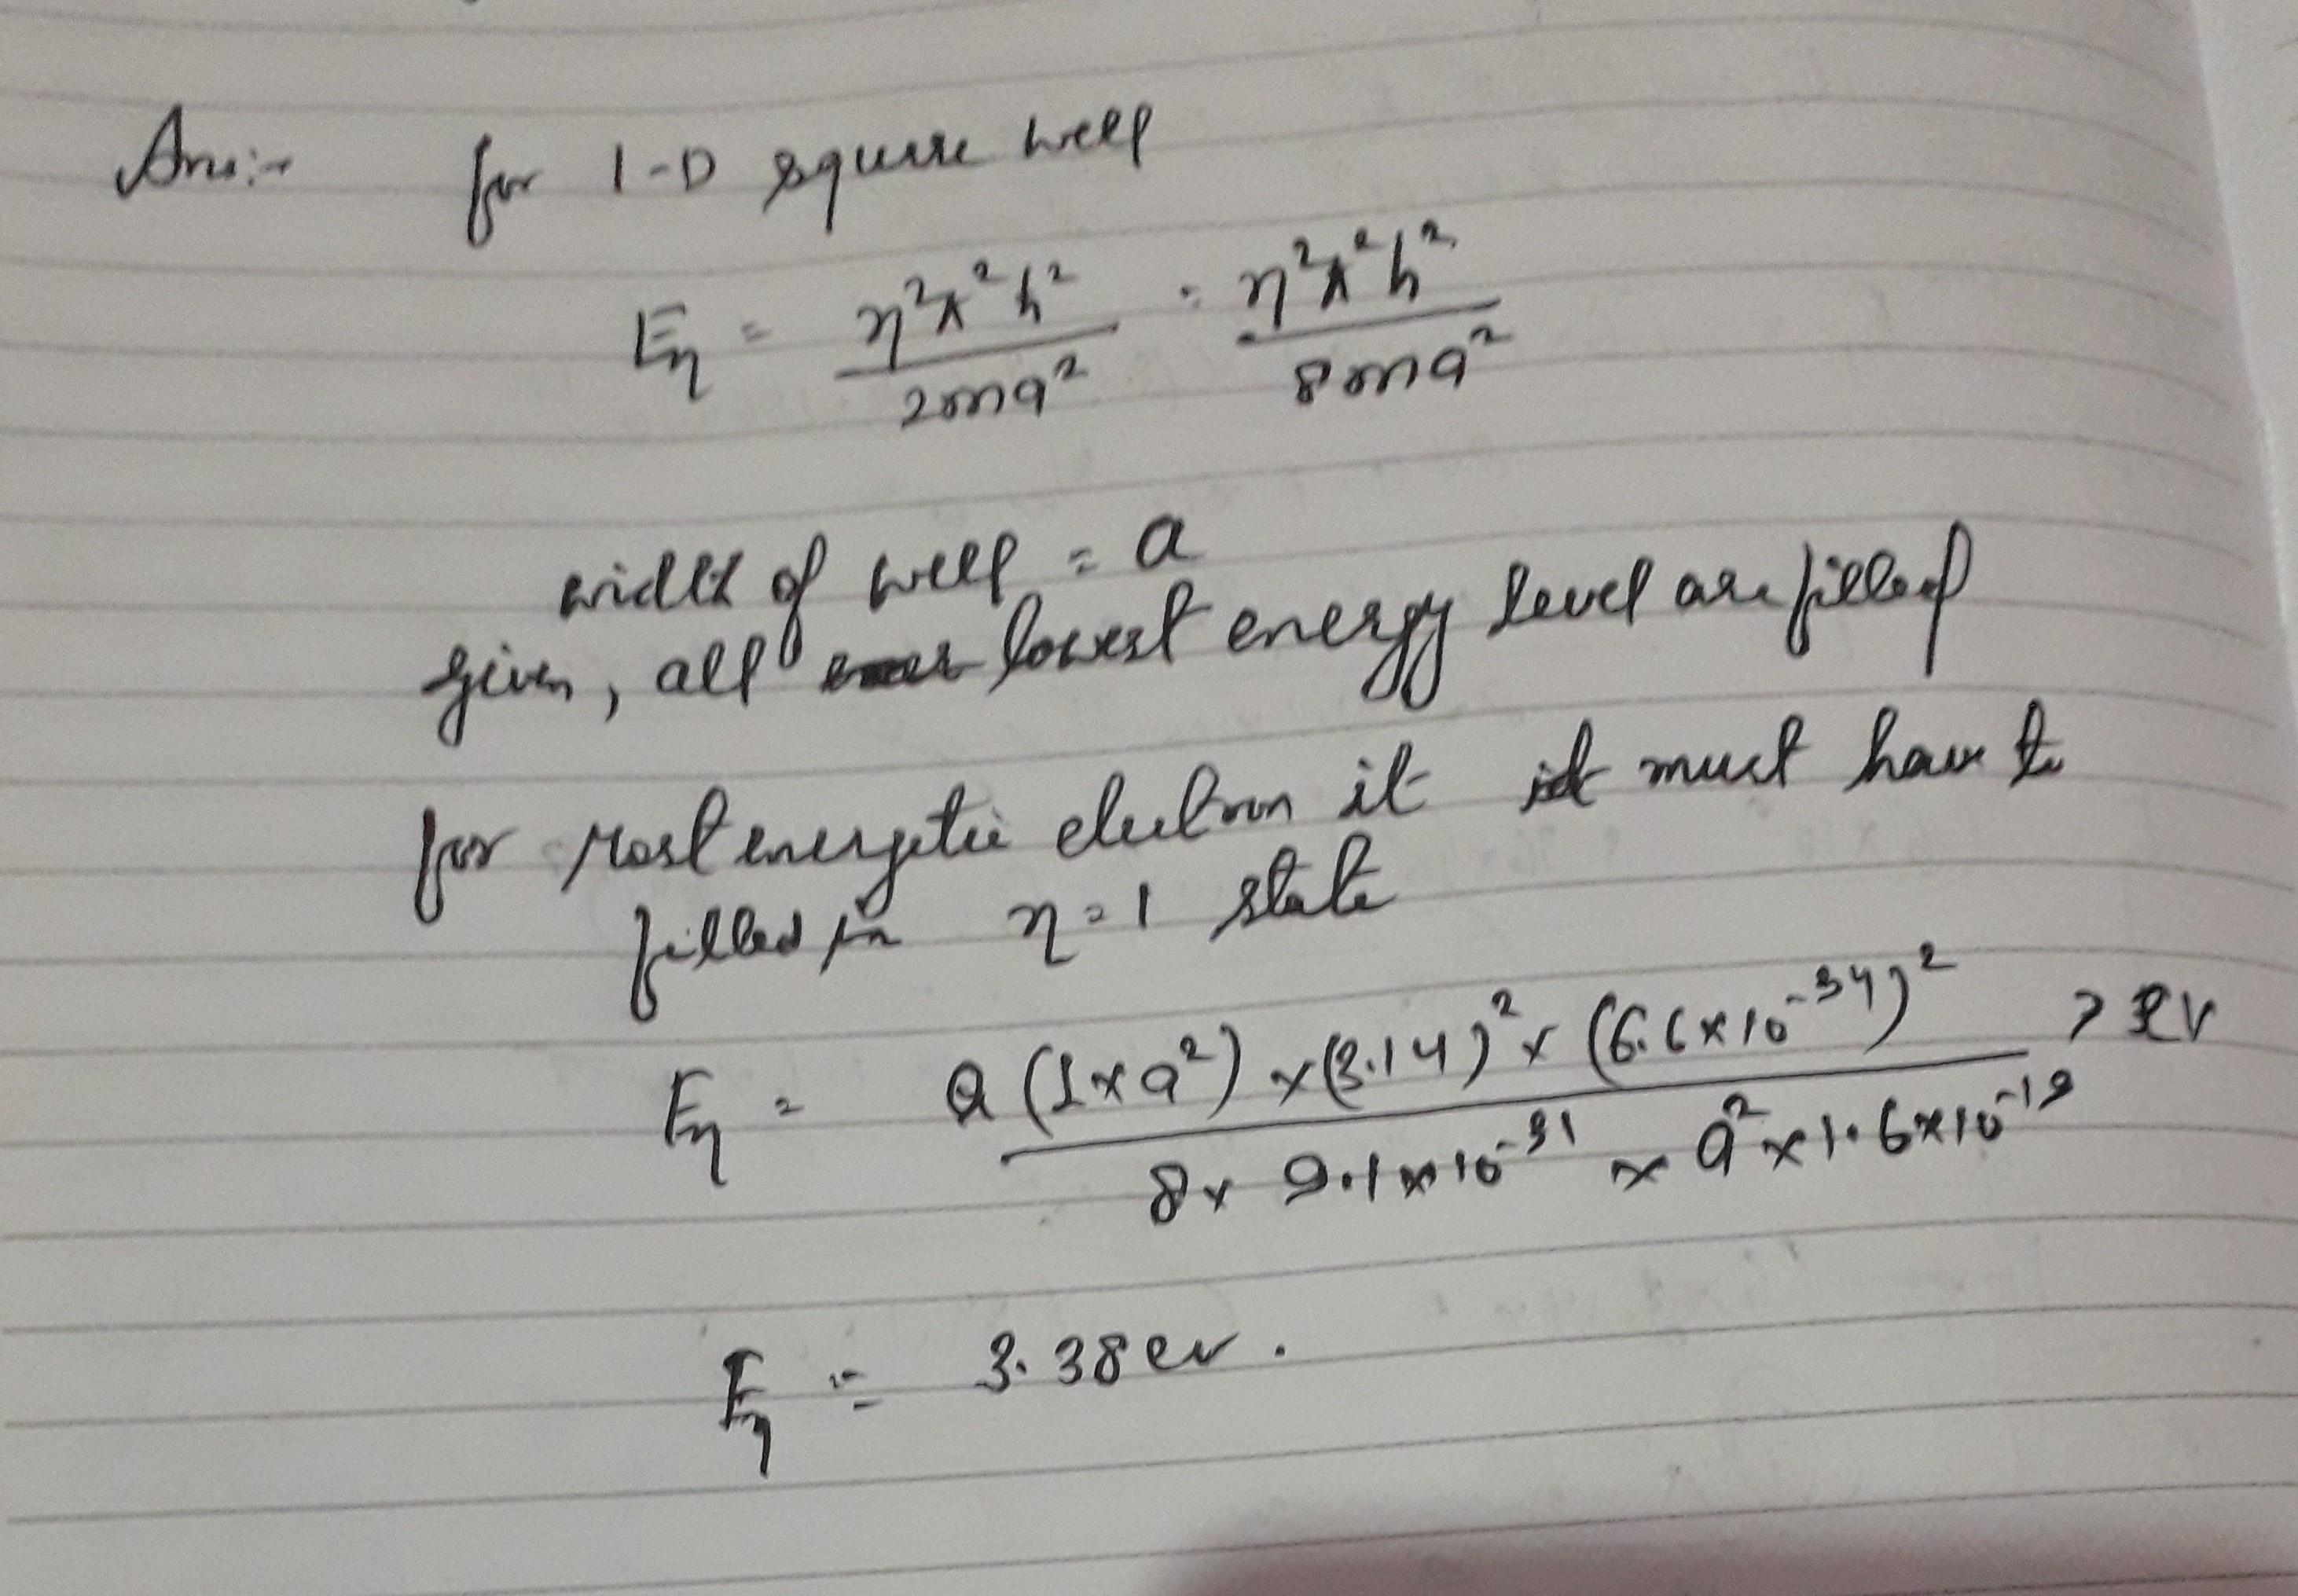 Ans:- for 1-D square well
Eη = η²π²ħ² / 2ma² = η²π²h² / 8ma²
width of well = a
given, all lowest energy level are filled
for Most energetic electron it must have to
filled in η=1 state
Eη = Q (1×a²) × (3.14)² × (6.6×10⁻³⁴)² / 8× 9.1×10⁻³¹ × a² × 1.6×10⁻¹⁹ > eV
Eη = 3.38 ev.